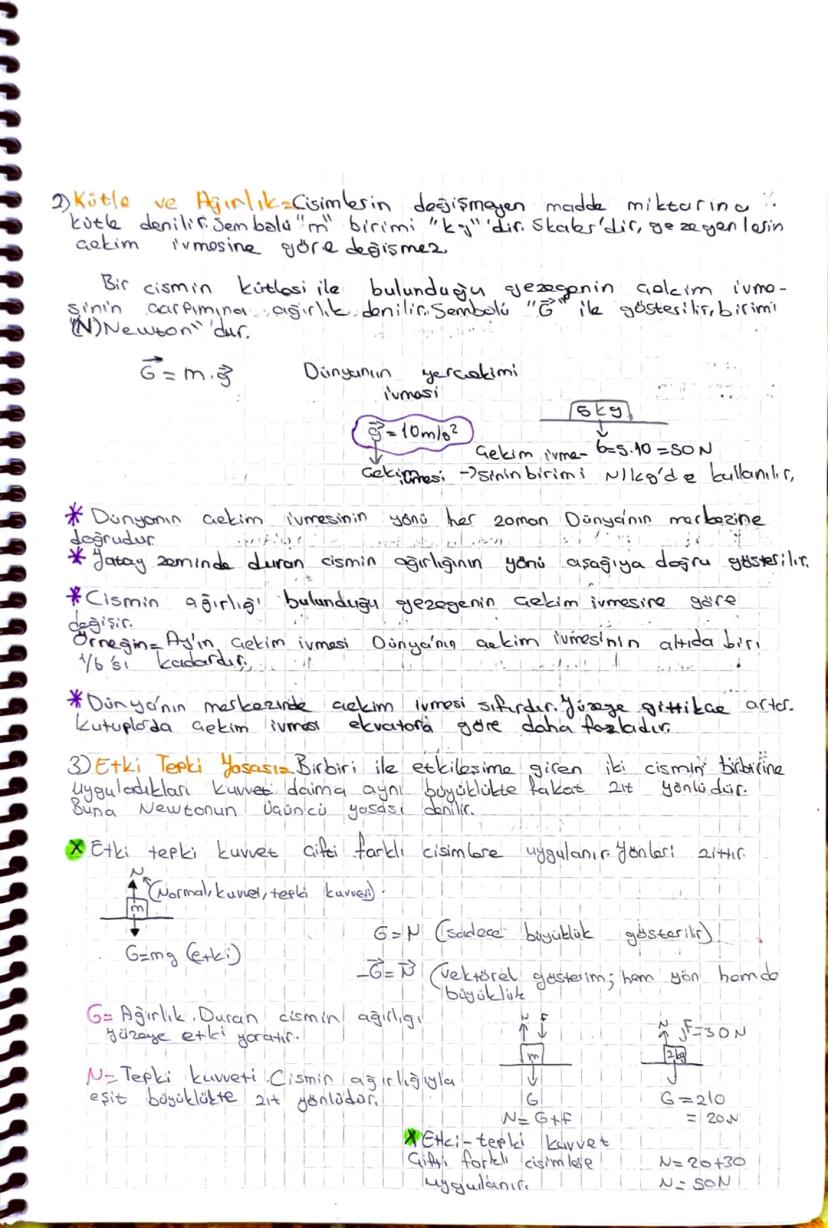 2) Kütle ve Ağırlık=Cisimlerin değişmeyen madde miktarına
kütle denilir. Sembolü "m" birimi "kg" 'dir. Skaler'dir, gezegenlerin
çekim ivmesine göre değişmez
Bir cismin kütlesi ile bulunduğu gezegenin çekim ivme-
sinin çarpımına ağırlık denilir. Sembolü "G" ile gösterilir, birimi
"(N)Newton" dur.
G = m.g
Dünyanın yerçekimi
ivmesi
5kg
g=10m/s²
Çekim ivme- G=5.10=50N
Çekim ivmesi →sinin birimi N/kg'de kullanılır,
* Dünyanın çekim ivmesinin yönü her zaman Dünya'nın merkezine
doğrudur
* Yatay zeminde duran cismin ağırlığının yönü aşağıya doğru gösterilir.
* Cismin ağırlığı bulunduğu gezegenin çekim ivmesine göre
değişir.
Örneğin= Ay'ın çekim ivmesi Dünya'nın çekim ivmesinin altıda biri
1/6 'sı kadardır,
* Dünya'nın merkezinde çekim ivmesi sıfırdır. Yüzeye gittikçe artar.
Kutuplarda çekim ivmesi ekvatora göre daha fazladır.
3) Etki Tepki Yasası= Birbiri ile etkileşime giren iki cismin birbirine
uyguladıkları kuvvet daima aynı büyüklükte fakat zıt yönlüdür.
Buna Newtonun üçüncü yasası denilir.
x Etki tepki kuvvet çifti farklı cisimlere uygulanır. Yönleri zıttır.
N
(Normal, kuvvet, tepki kuvveti)
m
G=mg (etki)
G=N (sadece büyüklük gösterilir)
-G=N (vektörel gösterim; hem yön hemde
büyüklük
G= Ağırlık. Duran cismin ağırlığı
yüzeye etki yaratır.
N F
m
G
N=G+F
N F=30N
2kg
G=210
= 20N
N= Tepki kuvveti. Cismin ağırlığıyla
eşit büyüklükte zıt yönlüdür.
x Etki-tepki kuvvet
Çifti farklı cisimlere
uygulanır.
N=20+30
N=50N